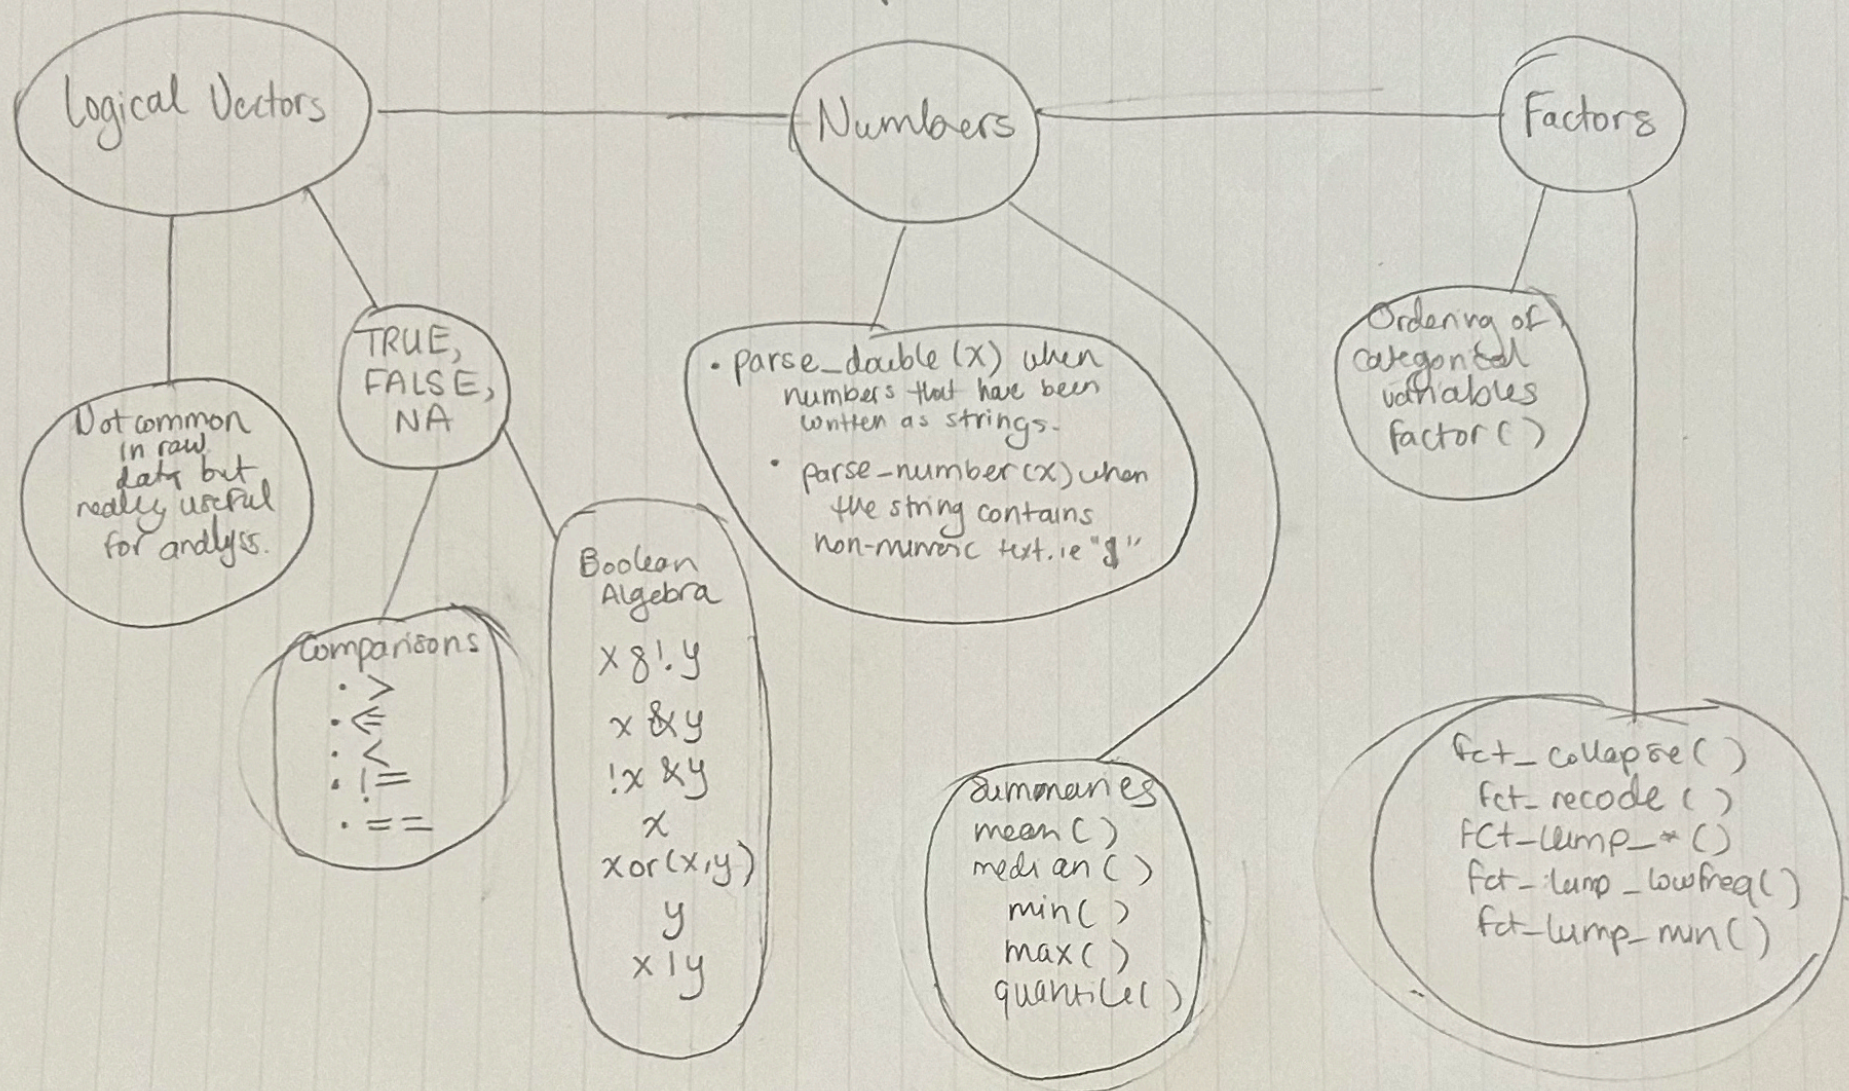 Logical Vectors
Numbers
Factors
Not common
in raw
data but
really useful
for analyss.
TRUE,
FALSE,
NA
Comparisons
• >
• <=
• <
• !=
• ==
Boolean
Algebra
x & !y
x & y
!x & y
x
xor(x,y)
y
x | y
• parse_double (x) when
numbers that have been
written as strings.
• parse_number(x) when
the string contains
non-numeric text. ie "$"
Summaries
mean( )
median( )
min( )
max( )
quantile( )
Ordering of
categorical
variables
factor( )
fct_collapse( )
fct_recode ( )
fct_lump_*( )
fct_lump_lowfreq( )
fct_lump_min( )